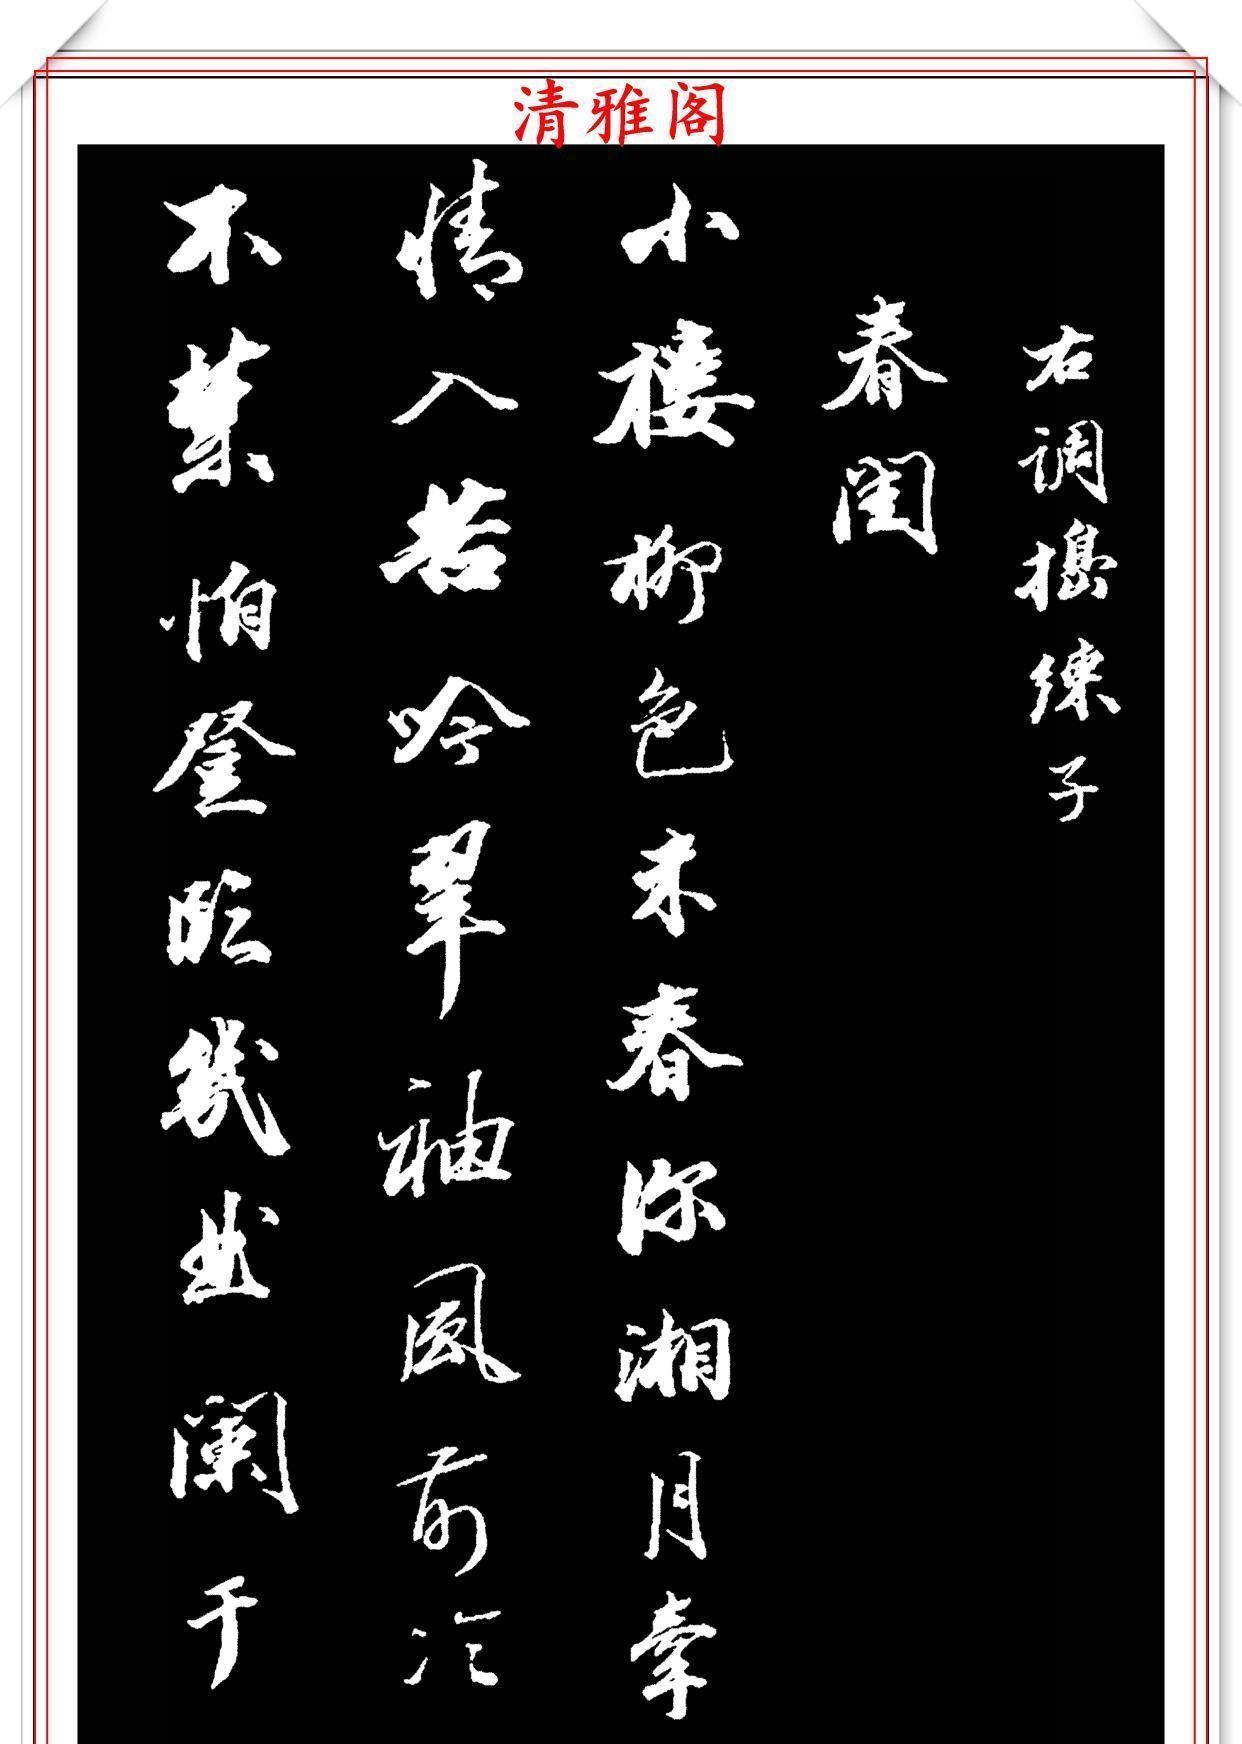 清雅阁
右調搗練子
春閨
小樓柳色未春深湘月牽
情入苦吟翠袖風前冷
不禁怕登臨幾曲闌干